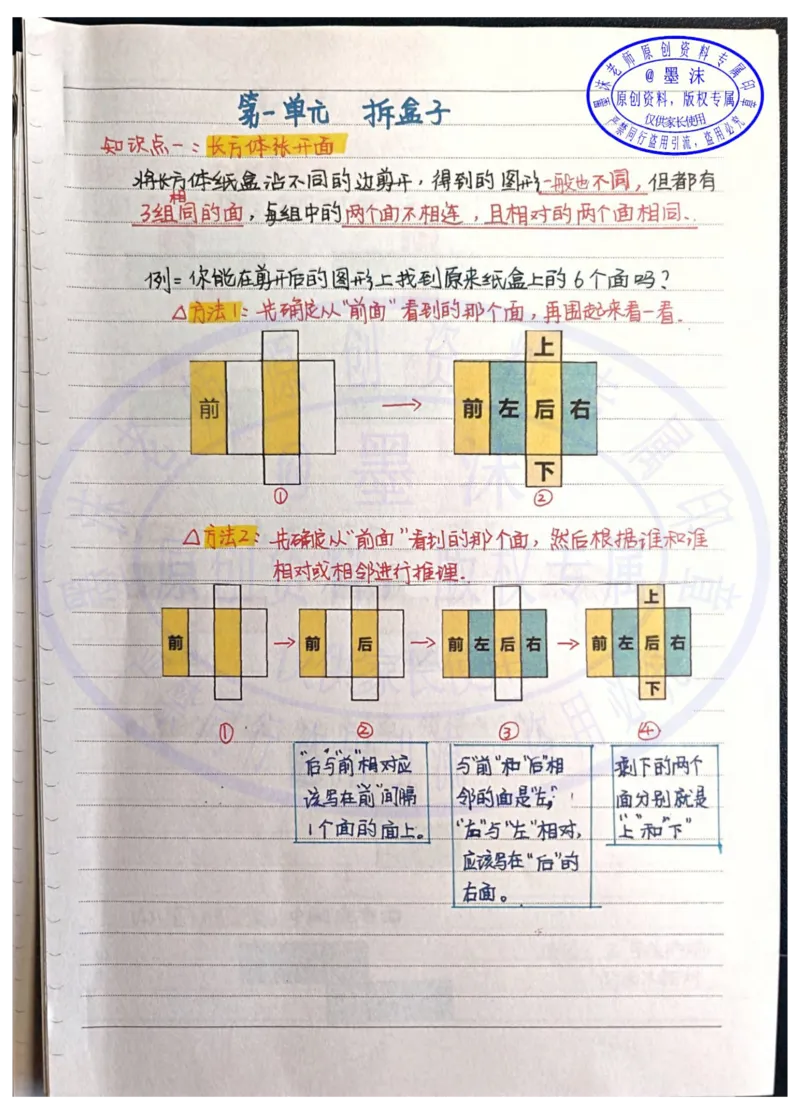 墨沫老师原创资料专属印章
@墨沫
原创资料，版权专属
仅供家长使用
严禁同行盗用引流，盗用必究
第一单元 拆盒子
知识点一：长方体张开面
将长方体纸盒沿不同的边剪开，得到的图形一般也不同，但都有
3组相同的面，每组中的两个面不相连，且相对的两个面相同。
例：你能在剪开后的图形上找到原来纸盒上的6个面吗？
△方法1：先确定从“前面”看到的那个面，再围起来看一看。
前
上
前 左 后 右
下
① ②
△方法2：先确定从“前面”看到的那个面，然后根据谁和谁
相对或相邻进行推理。
前
前 后
前 左 后 右
上
前 左 后 右
下
① ② ③ ④
“后”与“前”相对应
该写在“前”间隔
1个面的面上。
与“前”和“后”相
邻的面是“左”，
“右”与“左”相对，
应该写在“后”的
右面。
剩下的两个
面分别就是
“上”和“下”